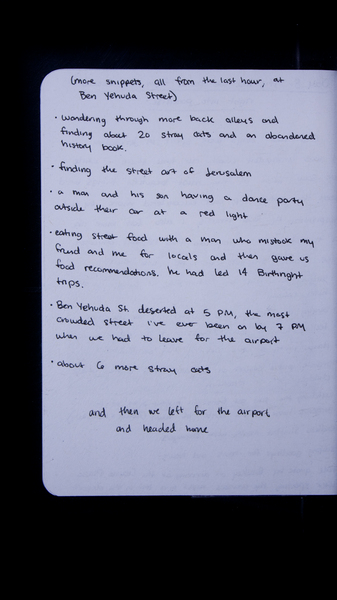 (more snippets, all from the last hour, at
Ben Yehuda Street)
· wandering through more back alleys and
finding about 20 stray cats and an abandoned
history book.
· finding the street art of Jerusalem
· a man and his son having a dance party
outside their car at a red light
· eating street food with a man who mistook my
friend and me for locals and then gave us
food recommendations. he had led 14 Birthright
trips.
· Ben Yehuda St. deserted at 5 PM, the most
crowded street i've ever been on by 7 PM
when we had to leave for the airport
· about 6 more stray cats
and then we left for the airport
and headed home